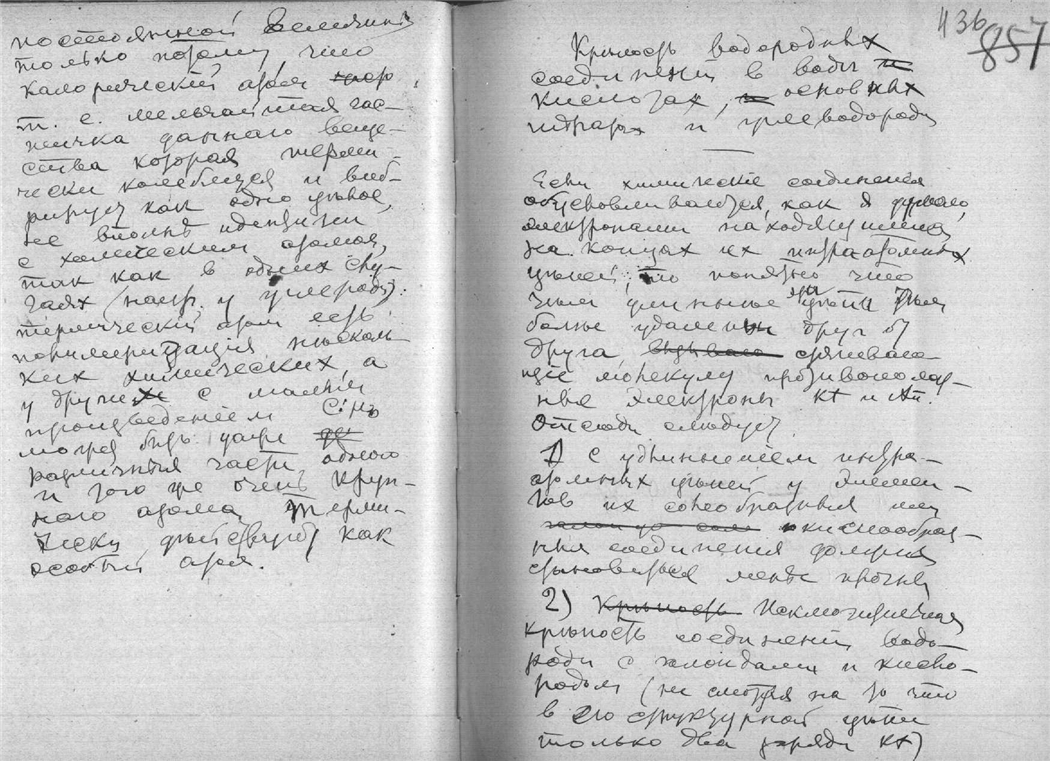 постоянной величиной
только потому что
калорический атом
т. е. мельчайшая час-
тичка даннаго веще-
ства которая терми-
чески колеблется и виб-
рирует как одно цѣлое,
не вполнѣ идентичн
с химическим атомом,
так как в одних слу-
чаях (напр. у углерода)
термическій атом есть
полимеризація нѣсколь-
ких химических, а
у других с малым
произведеніем
может быть даже
различныя части одного
и того же очень круп-
наго атома терми-
чески дѣйствуют как
особый атом.
436
857
Крѣпость водородных
соединений в воды и
кислотах, и основных
гидратах и углеводородах
Если химическіе соединенія
обусловливаются, как я думаю,
электронами находящимися
на концах их интраатомных
цѣпей, то понятно что
чѣм длиннѣе эти цѣпи тѣм
болѣе удалены друг от
друга, стягиваю-
щіе молекулу противополож-
ные электроны Кт и Ан.
Отсюда слѣдует
1) С удлиненіем интра-
атомных цѣпей у элемен-
тов их солеобразныя или
кислообраз-
ныя соединенія должны
становиться менѣе прочны
2) Крѣпость Исключительная
крѣпость соединений водо-
рода с галоидами и кисло-
родом (не смотря на то что
в его структурной цѣпи
только два заряда Кт)